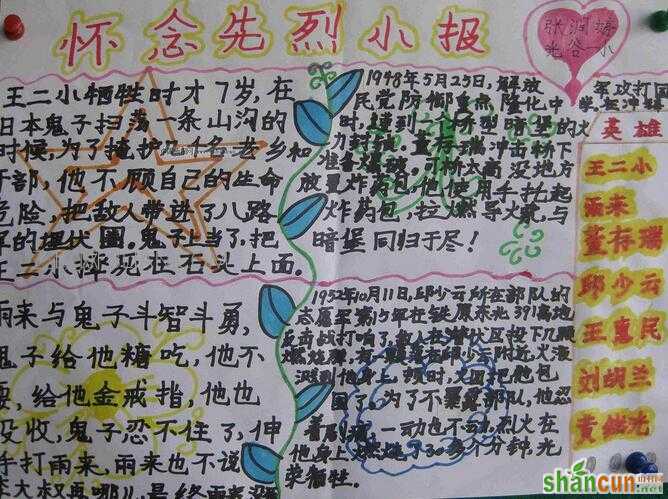 怀念先烈小报
张润楠
光谷一小
王二小牺牲时才7岁，在
日本鬼子扫荡一条山沟的
时候，为了掩护几十名老乡和
干部，他不顾自己的生命
危险，把敌人带进了八路
军的埋伏圈。鬼子上当了，把
王二小摔死在石头上面。
雨来与鬼子斗智斗勇，
鬼子给他糖吃，他不
要，给他金戒指，他也
没收，鬼子忍不住了，伸
手打雨来，雨来也不说
李大叔再哪儿，是终雨来没
1948年5月25日，解放军攻打国
民党防御重点隆化中学，在冲锋
时，遭到一个桥型暗堡的火
力封锁，董存瑞冲击桥下
准备爆破。可桥太高没地方
放置炸药包，他使用手托起
炸药包，拉燃导火索，与
暗堡同归于尽！
1952年10月11日，邱少云所在部队的
志愿军第15军在铁原东北391高地
反击战打响了。敌人在潜伏区投下几颗
燃烧弹，有一颗落在邱少云附近，火液
溅到他身上，顿时，火团把他包
围了。为了不暴露部队，他忍
着剧痛，一动也不动，烈火在
他身上燃烧了30多个分钟，光
荣牺牲。
英雄
王二小
雨来
董存瑞
邱少云
王惠民
刘胡兰
黄继光
shancun